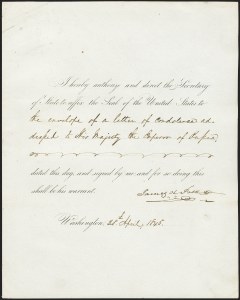 I hereby authorize and direct the Secretary
of State to affix the Seal of the United States to
the envelope of a letter of condolence ad-
dressed to His Majesty the Emperor of
dated this day, and signed by me and for so doing this
shall be his warrant.
James K. Polk
Washington, April,